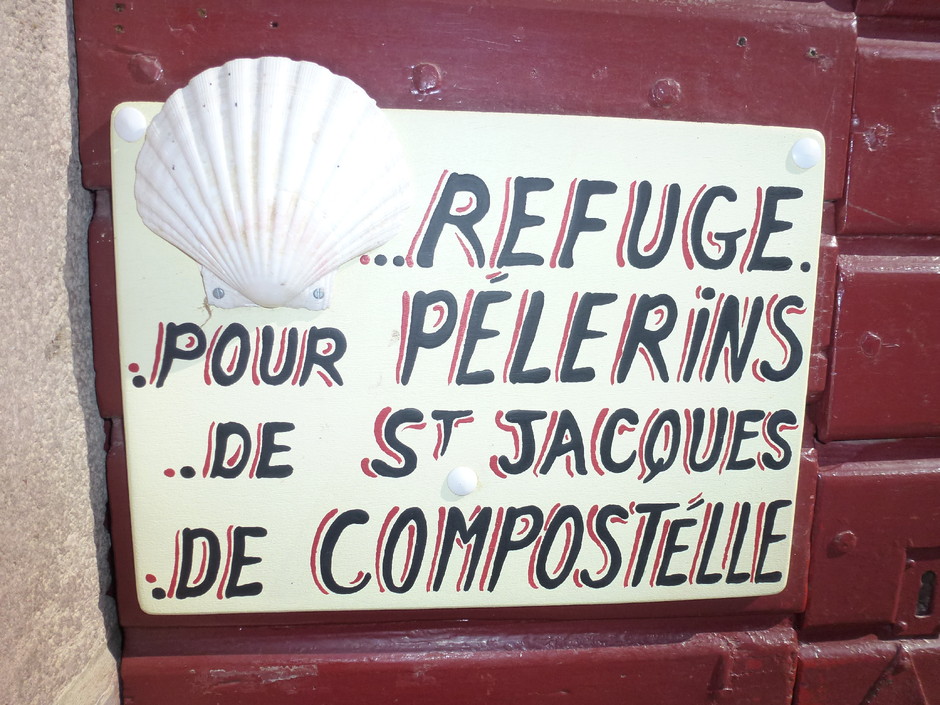 ...REFUGE.
.POUR PÉLERiNS
..DE ST JACQUES
.DE COMPOSTÉLLE